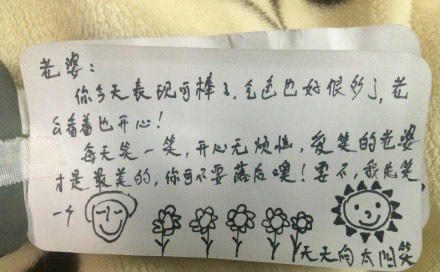 老婆：
你今天表现可棒了，气色也好很多了，老
公看着也开心！
每天笑一笑，开心无烦恼，爱笑的老婆
才是最美的，你可不要落后噢！要不，我先笑
一个
天天向太阳笑